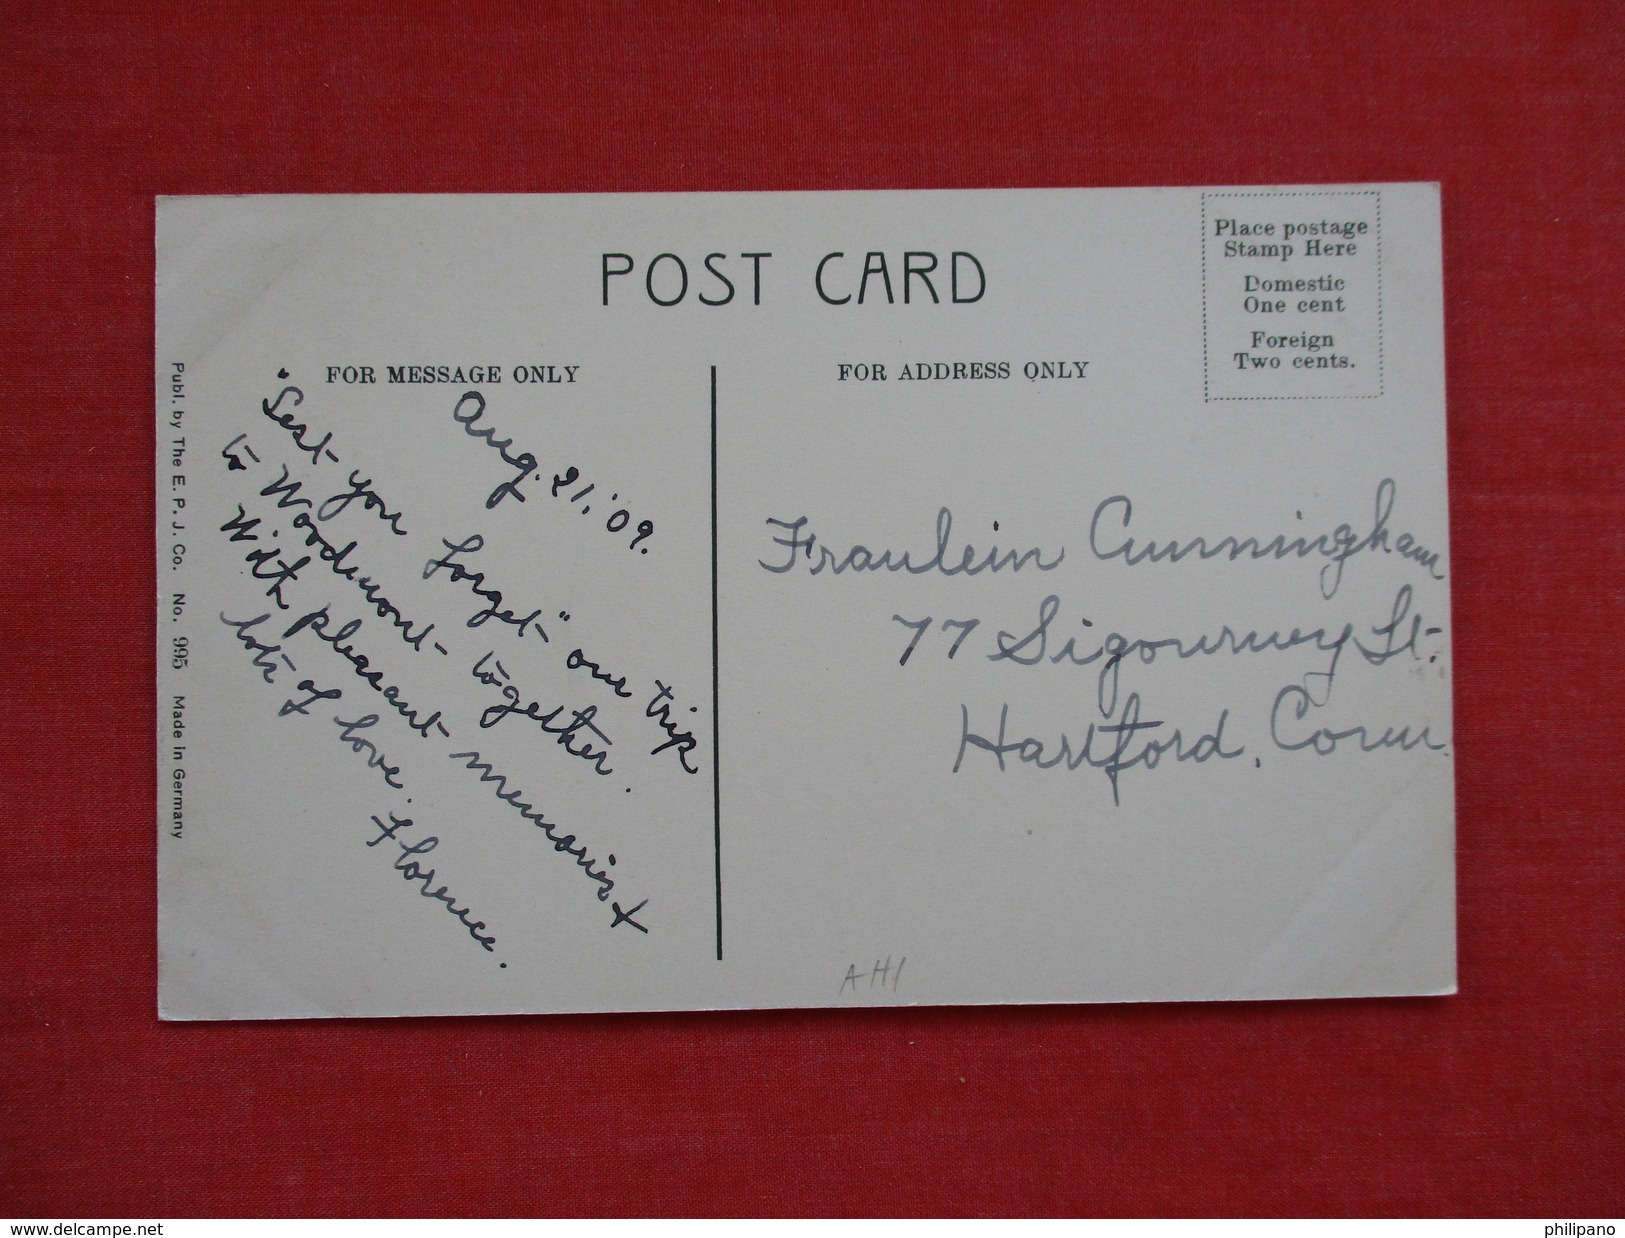 POST CARD
Place postage
Stamp Here
Domestic
One cent
Foreign
Two cents.
FOR MESSAGE ONLY
FOR ADDRESS ONLY
Publ. by The E. P. J. Co. No. 995 Made in Germany
Aug. 21, '09.
"Lest you forget" our trip
to Woodmont together.
With pleasant memories +
lots of love.
Florence.
Fraulein Cunningham
77 Sigourney St.
Hartford, Conn.
AH1
www.delcampe.net
philipano